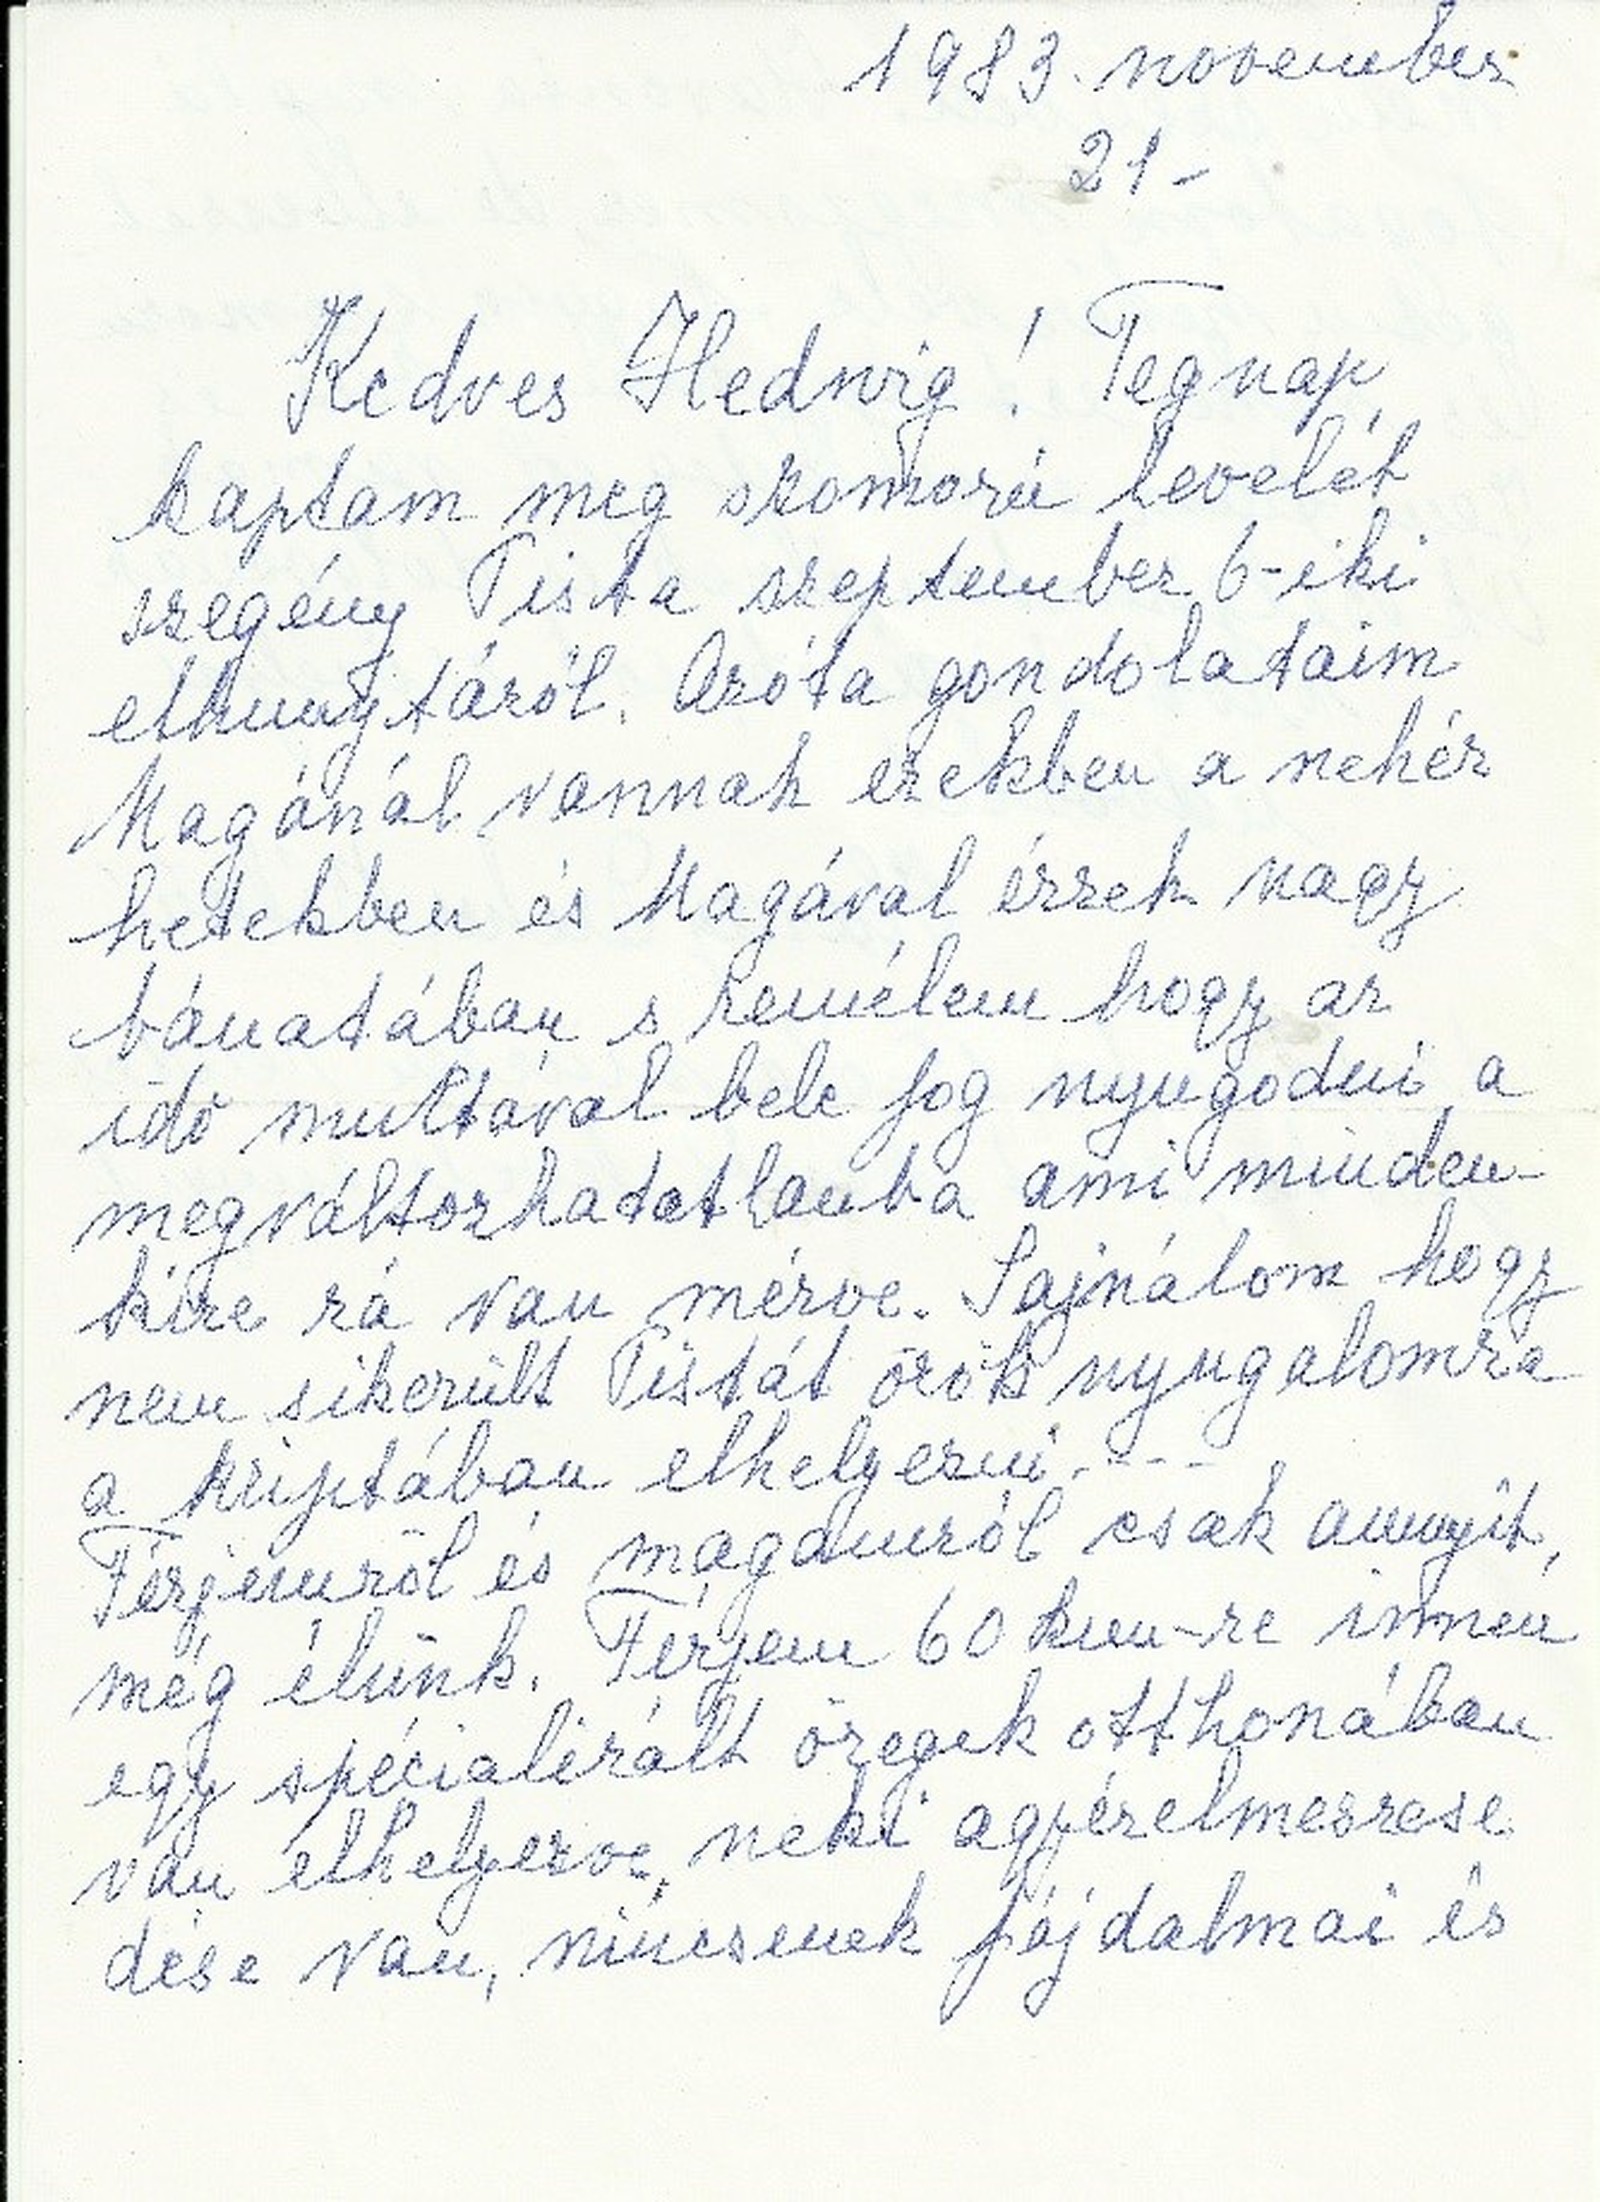 1983. november
21-
Kedves Hedwig! Tegnap
kaptam meg szomorú levelét
szegény Pista szeptember 6-iki
elhunytáról. Azóta gondolataim
Magánál vannak ezekben a nehéz
hetekben és Magával érzek nagy
bánatában s remélem hogy az
idő multával bele fog nyugodni a
megváltozhatatlanba ami minden-
kire rá van mérve. Sajnálom hogy
nem sikerült Pistát örök nyugalomra
a kriptában elhelyezni. - - -
Férjemről és magamról csak annyit,
még élünk. Férjem 60 km-re innen
egy speciálizált öregek otthonában
van elhelyezve, neki agyérelmeszese
dése van, nincsenek fájdalmai és